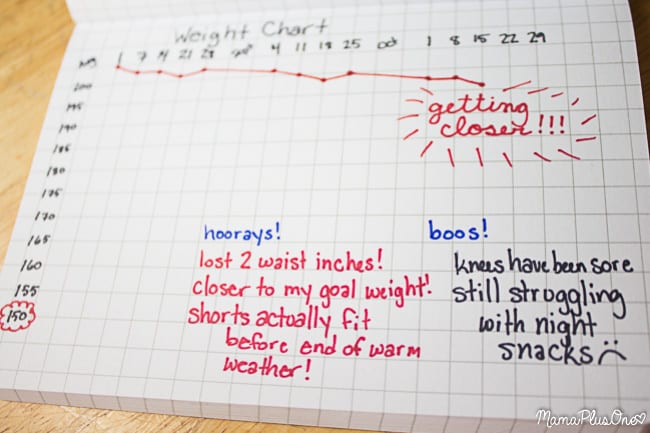 Weight Chart
Aug 1 7 14 21 28 4 11 18 25 oct 1 8 15 22 29
200
195
190
185
180
175
170
165
160
155
150
getting
closer!!!
hoorays!
lost 2 waist inches!
closer to my goal weight!
shorts actually fit
before end of warm
weather!
boos!
knees have been sore
still struggling
with night
snacks
MamaPlusOne